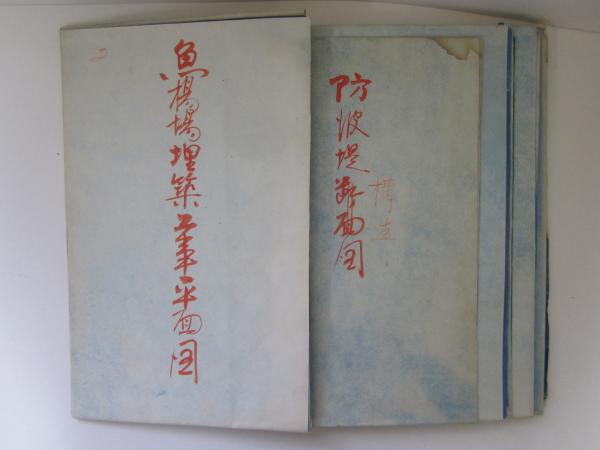 魚揚場埋築工事平面図
防波堤断面図
構造